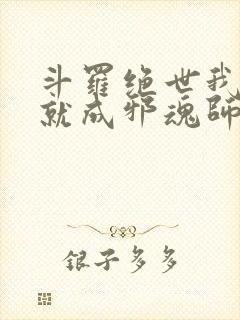 斗羅绝世我
就成邪魂師
银子多多